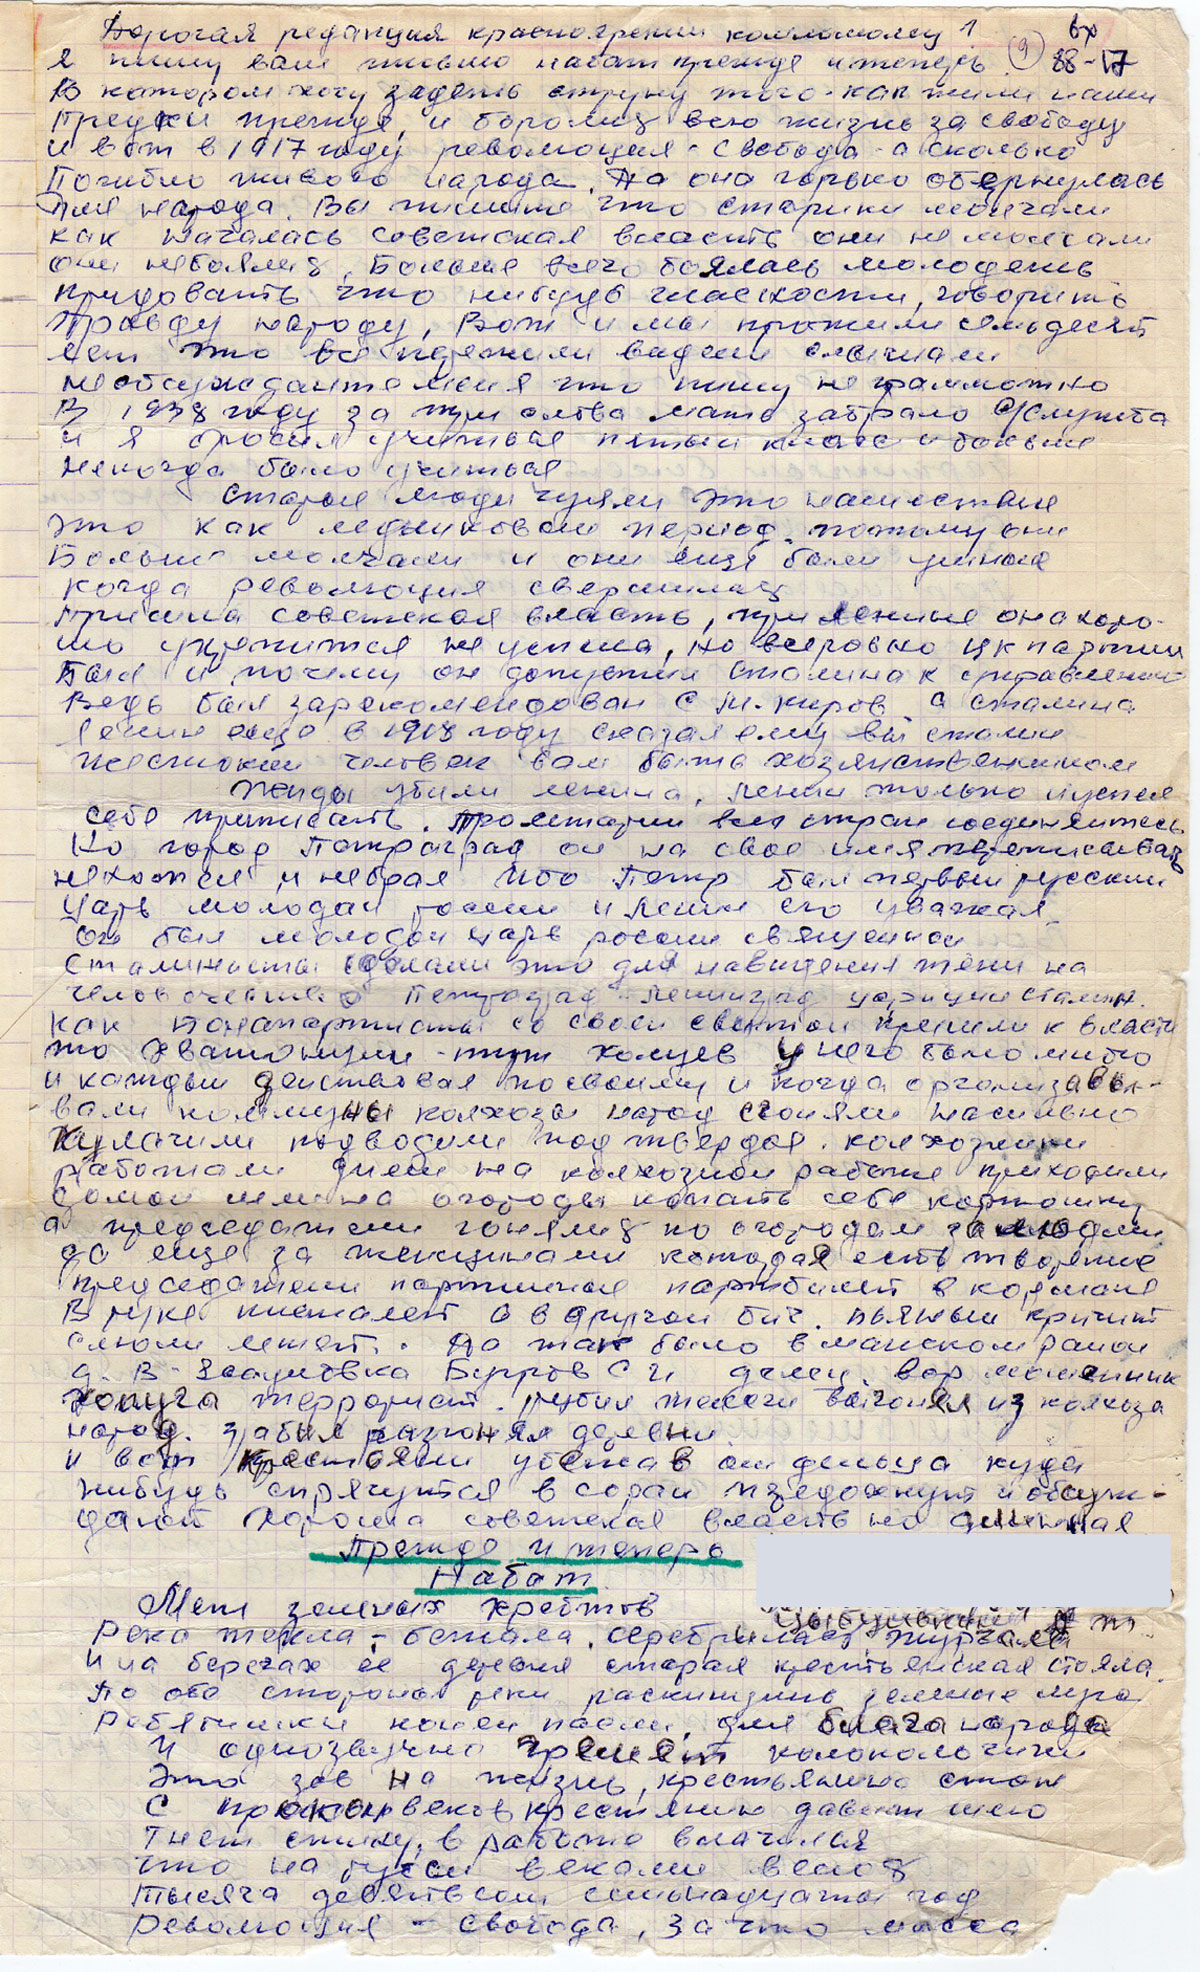 Дорогая редакция красноярскии комсомолец 1 вх
Я пишу вам письмо набат прежде и теперь (9) 88-17
В котором хочу задеть струну того-как жили наши
Предки прежде, и боролись всю жизнь за свободу
и вот в 1917 году революция-свобода-а сколько
Погибло живого народа. Да она горько обернулась
для народа. Вы пишите что старики молчали
как началась советская власть они не молчали
они небоялис. Больше всего боялась молодежь
придовать что нибудь гласности, говорить
правду народу, Вот и мы прожили семьдесят
лет это все пережили видели слышали
необсуждаите меня что пишу не граммотно
В 1938 году за три слова мать забрало Служба
и я бросил учиться пятыи класс и больше
некогда было учиться
Старые люди чуяли это нашествие
это как ледниковыи период. поэтому они
Больше молчали и они еще были умные
когда революция свершилась
Пришла советская власть, при ленине она хоро-
шо укрепится не успела, но всеровно цк партии
был и почему он допустил Сталина к управлению
Ведь был зарекомендован С М. киров а сталина
Ленин еще в 1918 году сказал ему вы сталин
жестокии человек вам быть хозяиственником
Жиды убили ленина, ленин только и успел
себе приписать. Пролетарии всех стран соединяитесь
Но город Петроград он на свое имя переписывать
не хотел и небрал ибо Петр был первыи русскии
царь молодои росеии и Ленин его уважал
Он был молодои царь росеии священнои
Сталинисты сделали это для наведения тени на
человечество Петроград-ленинград царицин сталин.
как Бонапартисты со своеи свитои пришли к власти
то хватонщин-тут холуев у него было много
и каждыи деиствовал посвоиму и когда организавы-
вали коммуны колхозы народ сгоняли насильно
Кулачили подводили под твердое. колхозники
работали днем на колхознои работе приходили
домои шли на огороды копать себе картошку
а председатели гонялис по огородам за людми
да еще за женщинами которая есть творение
председатели партииные партбилет в кормане
В руке пистолет а в другои бич. пьяныи кричит
слюни летят. Да так было в манском раион
д. В-Есауловка Буров С И делец. вор мошенник
хапуга террорист. рубил жилеги выгонял из колхоза
народ. забил разгонял деревни
и вот крестьяни убежав от дельца куда
нибудь спрячутся в сараи предохнут и обсуж-
дают Хороша советская власть но длинная
Прежде и теперь
Набат
Меж зеленых хребтов
Река текла,-бежала, серебрилась журчала
И на берегах ее деревня старая крестьянская стояла.
По обе стороны реки раскинулись зеленые луга
Ребятишки конеи пасли, для блага народа
И однозвучно гремят колокольчики
Это зов на жизнь, крестьянина стон
С прокон веков крестянину давят шею
Гнет спину, в работе влачился
что на руси веками велось
Тысяча девятьсот семьнадцатыи год
Революция-свобода, За что масса